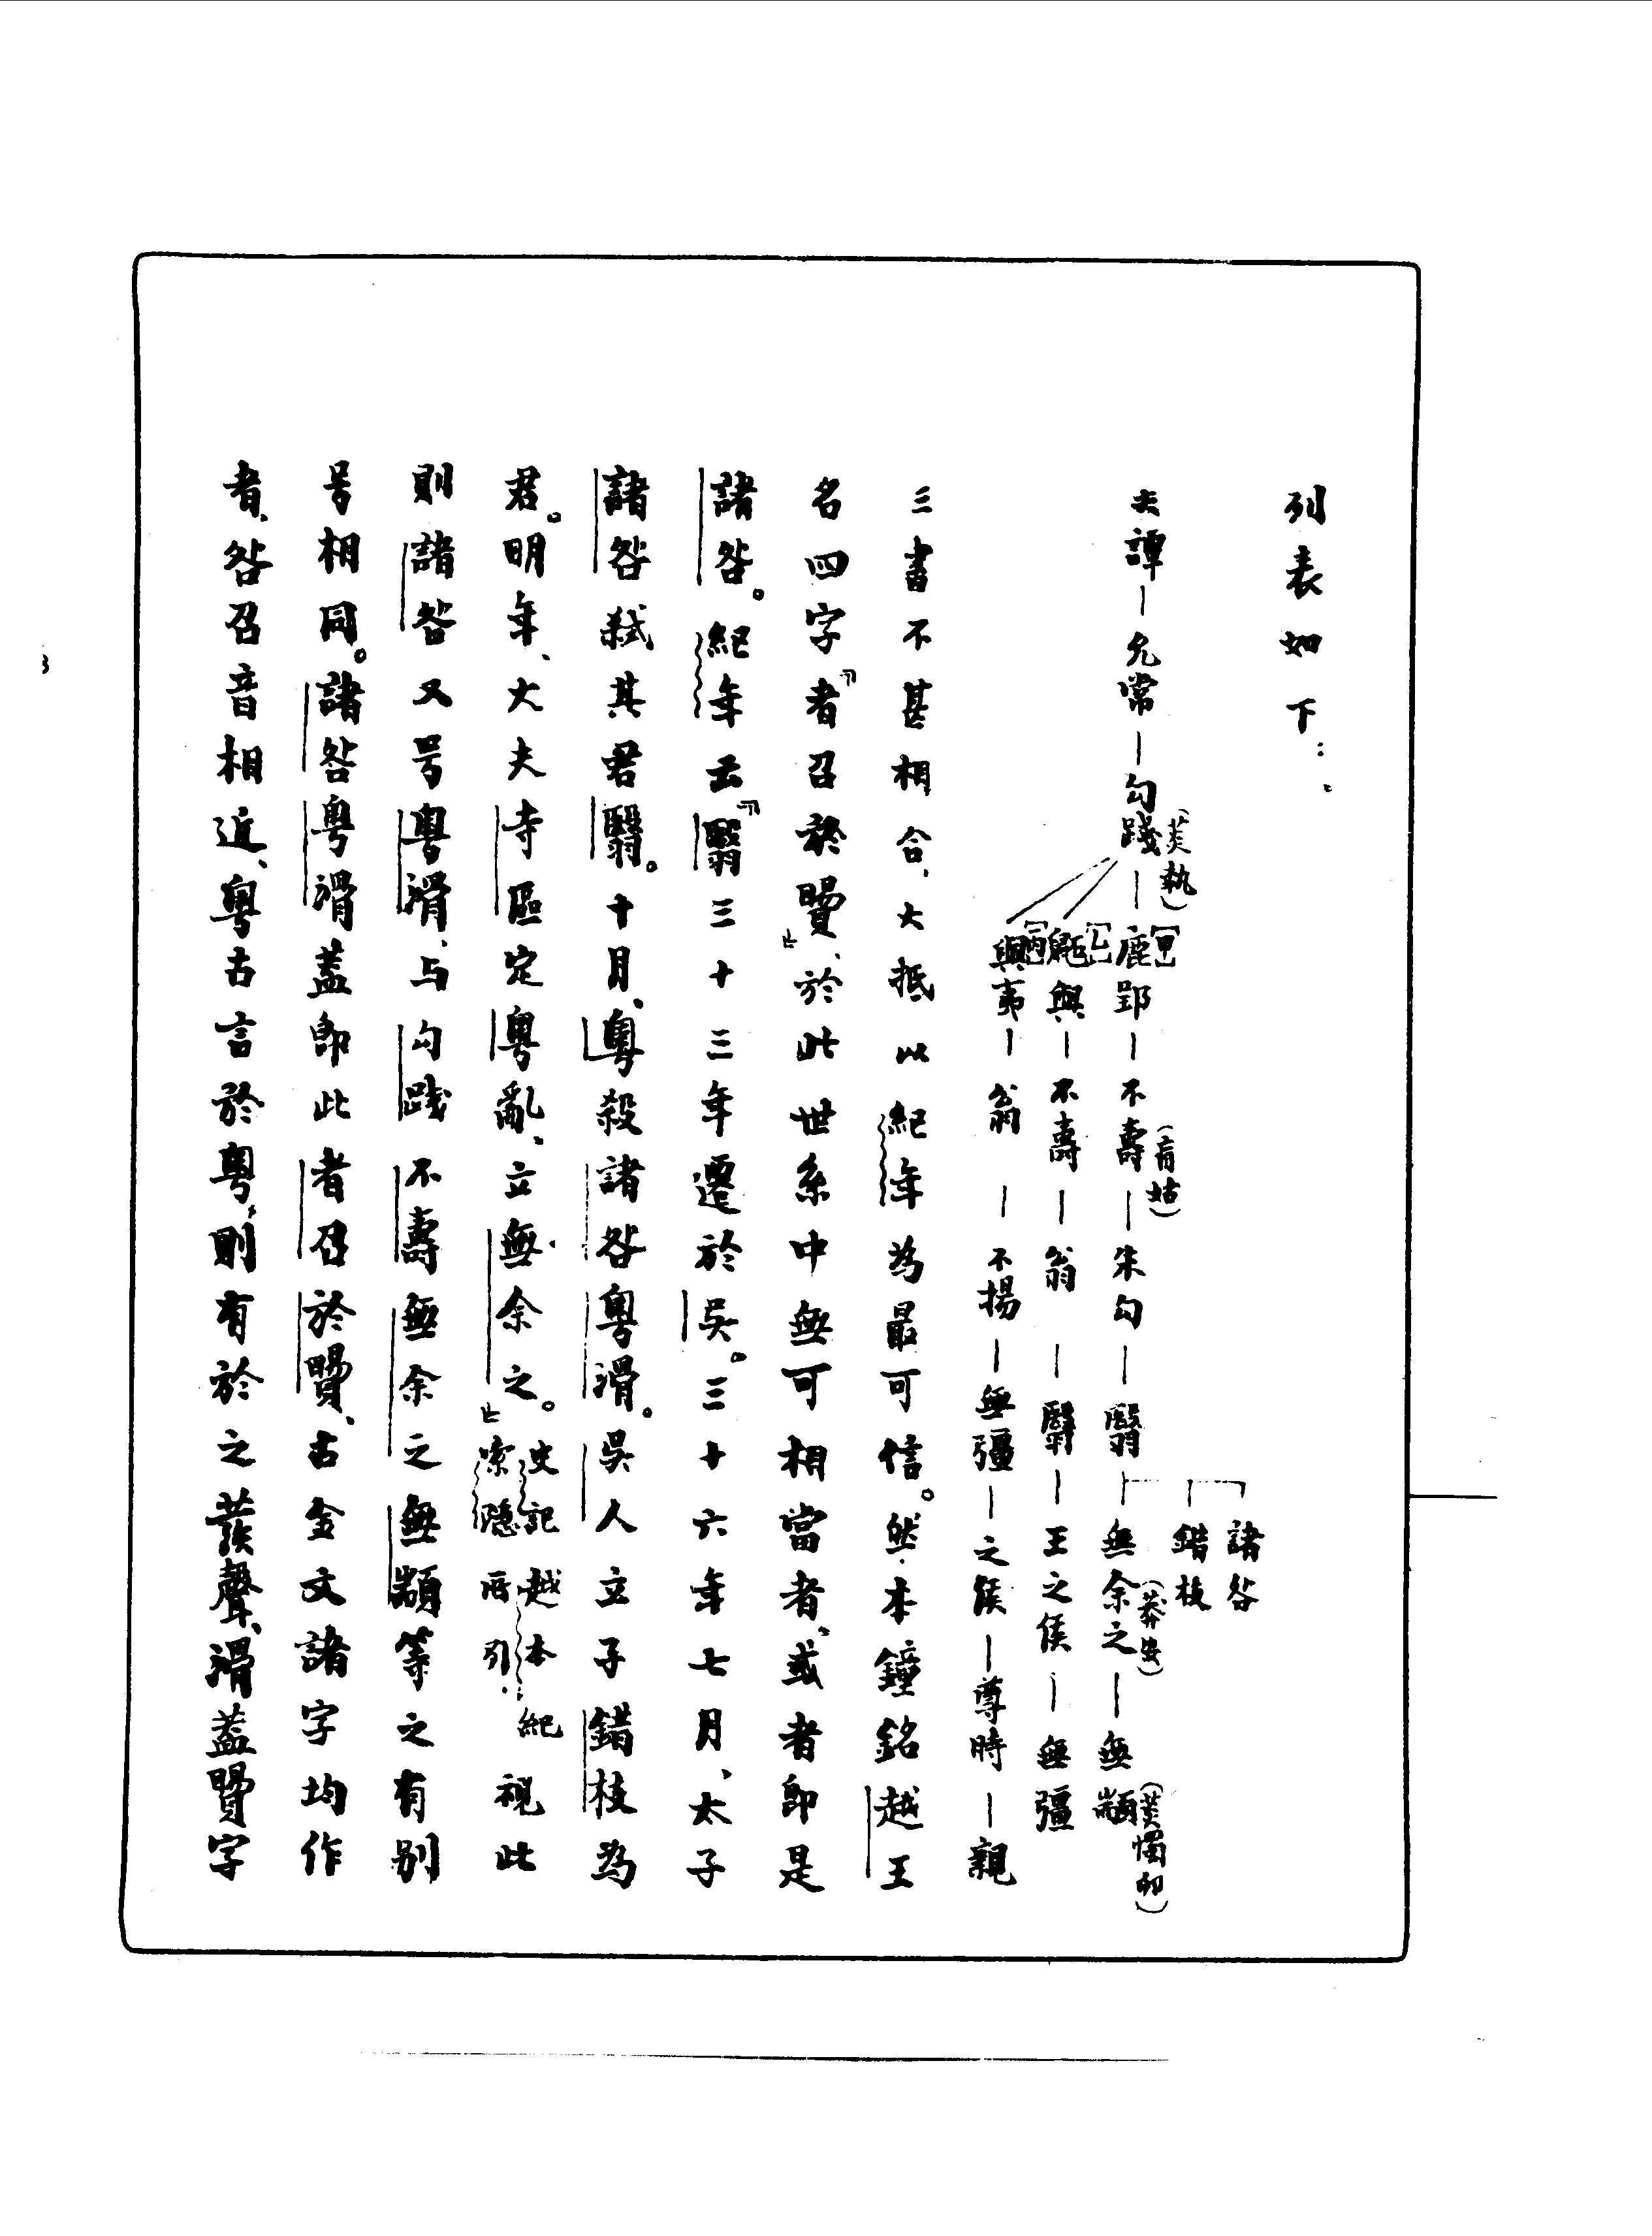 列表如下：
諸咎
錯枝
夫譚—允常—勾踐（菼執）—〔甲〕鹿郢—不壽（盲姑）—朱勾—翳—無余之（莽安）—無顓（菼蠋卯）
〔乙〕鼫與—不壽—翁—翳—王之侯—無彊
〔丙〕與夷—翁—不揚—無彊—之侯—尊時—親
三書不甚相合、大抵以紀年為最可信。然本鐘銘越王
名四字『者召於賹』、於此世系中無可相當者、或者即是
諸咎。紀年云『翳三十三年遷於吳。三十六年七月、太子
諸咎弒其君翳。十月、粵殺諸咎粵滑。吳人立子錯枝為
君。明年、大夫寺區定粵亂、立無余之。』史記越本紀索隱所引．視此
則諸咎又号粵滑、与勾踐不壽無余之無顓等之有别
号相同。諸咎粵滑蓋即此者召於賹、古金文諸字均作
者、咎召音相近、粵古言於粵、則有於之發聲、滑蓋賹字